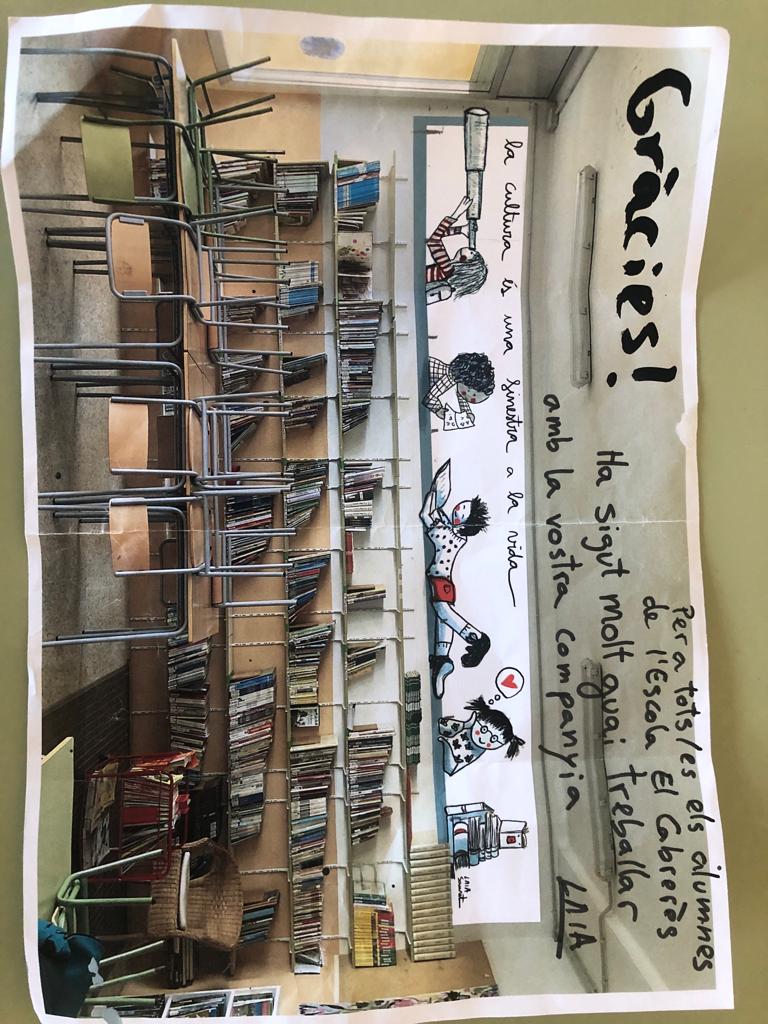 Gràcies!
Per a tots/es els alumnes
de l'Escola El Cabrerès
Ha sigut molt guai treballar
amb la vostra companyia
LAIA
la cultura és una finestra a la vida
LAIA